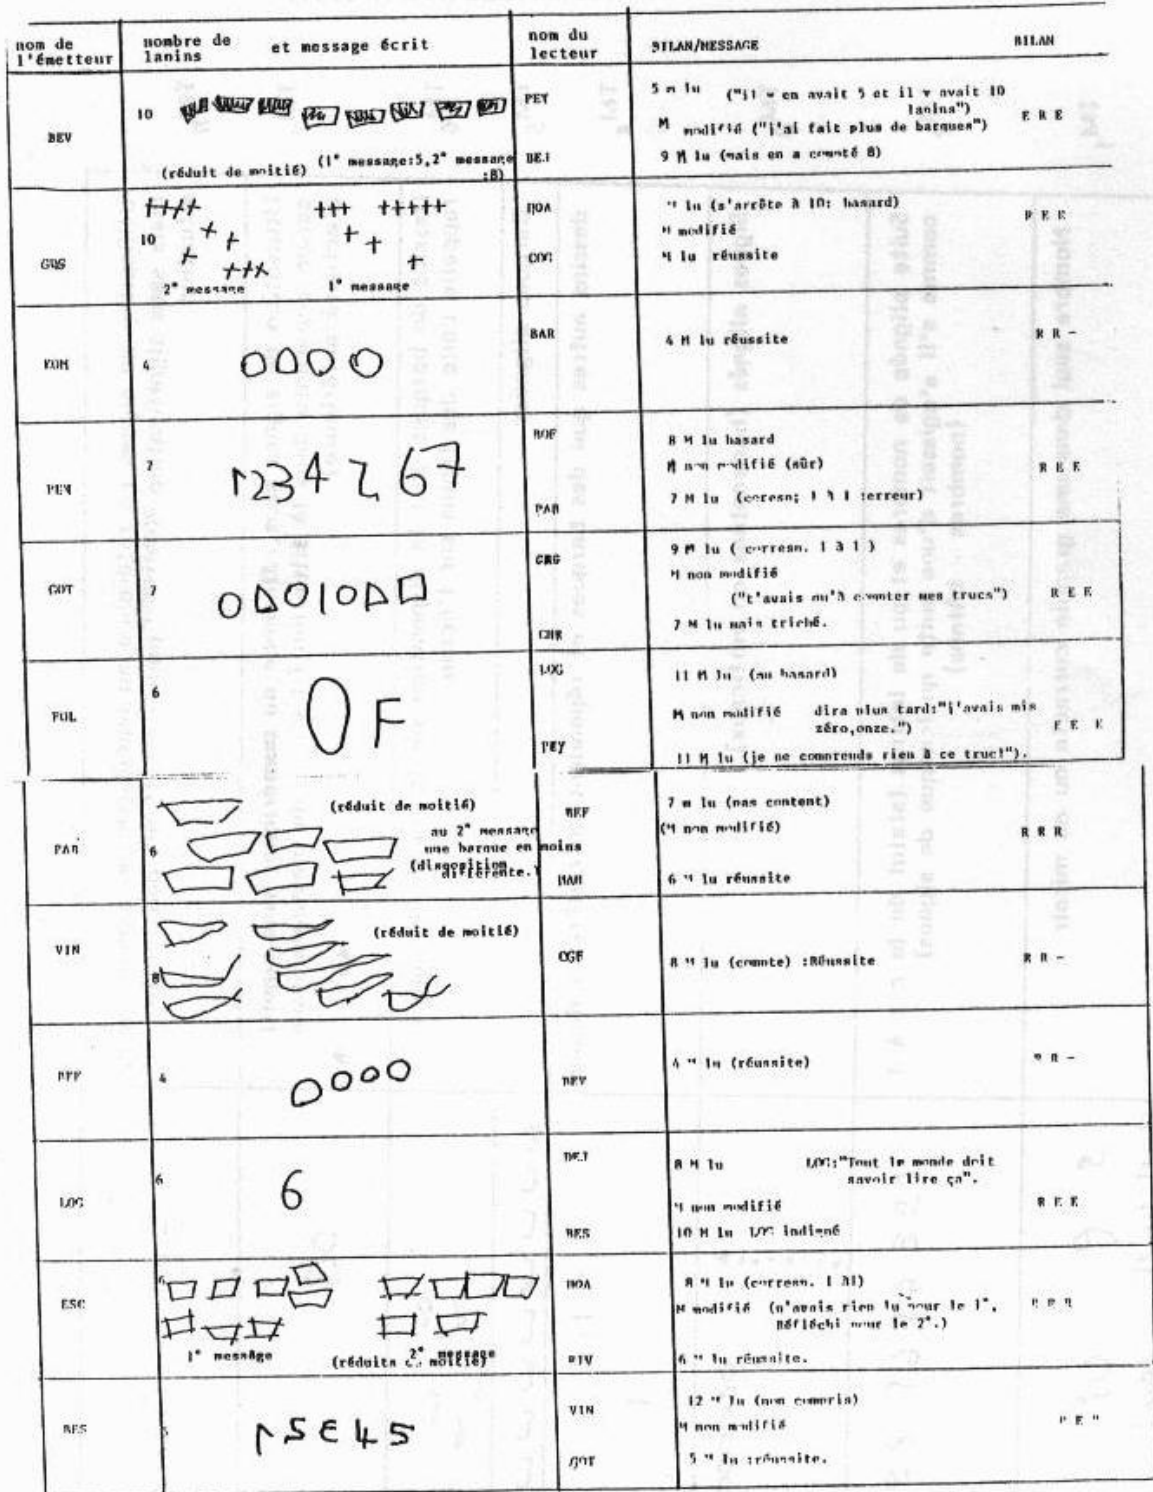 nom de l'émetteur
nombre de lanins et message écrit
nom du lecteur
BILAN/MESSAGE
BILAN
BEV
10
(réduit de moitié) (1° message:5,2° message :8)
PEY
5 m lu ("il y en avait 5 et il y avait 10 lanins")
M modifié ("j'ai fait plus de barques")
E R E
DEJ
9 M lu (mais en a compté 8)
GUS
10
2° message 1° message
lu (s'arrête à 10: hasard)
M modifié
M lu réussite
4
0000
BAR
4 M lu réussite
R R -
7
1234 67
8 M lu hasard
M non modifié (sûr)
R E E
PAR
7 M lu (coresp; 1 à 1 :erreur)
GOT
7
GRG
9 M lu ( corresp. 1 à 1 )
M non modifié
("t'avais qu'à compter mes trucs")
R E E
CHR
7 M lu mais triché.
FUL
6
0F
LOG
11 M lu (au hasard)
M non modifié dira plus tard:"j'avais mis zéro,onze.")
E E E
PEY
11 M lu (je ne comprends rien à ce truc!").
PAR
6
(réduit de moitié)
au 2° message une barque en moins (disposition différente.)
7 m lu (pas content)
(M non modifié)
R R R
6 M lu réussite
VIN
8
(réduit de moitié)
8 M lu (compte) :Réussite
R R -
4
0000
BEV
4 M lu (réussite)
R -
LOG
6
6
DEJ
8 M lu LOG:"Tout le monde doit savoir lire ça".
M non modifié
R E E
BES
10 M lu LOG indigné
ESC
6
1° message 2° message
(réduits de moitié)
8 M lu (corresp. 1 à1)
M modifié (n'avais rien lu pour le 1°, Réfléchi pour le 2°.)
6 M lu réussite.
BES
45
VIN
12 M lu (non compris)
M non modifié
GOT
5 M lu :réussite.